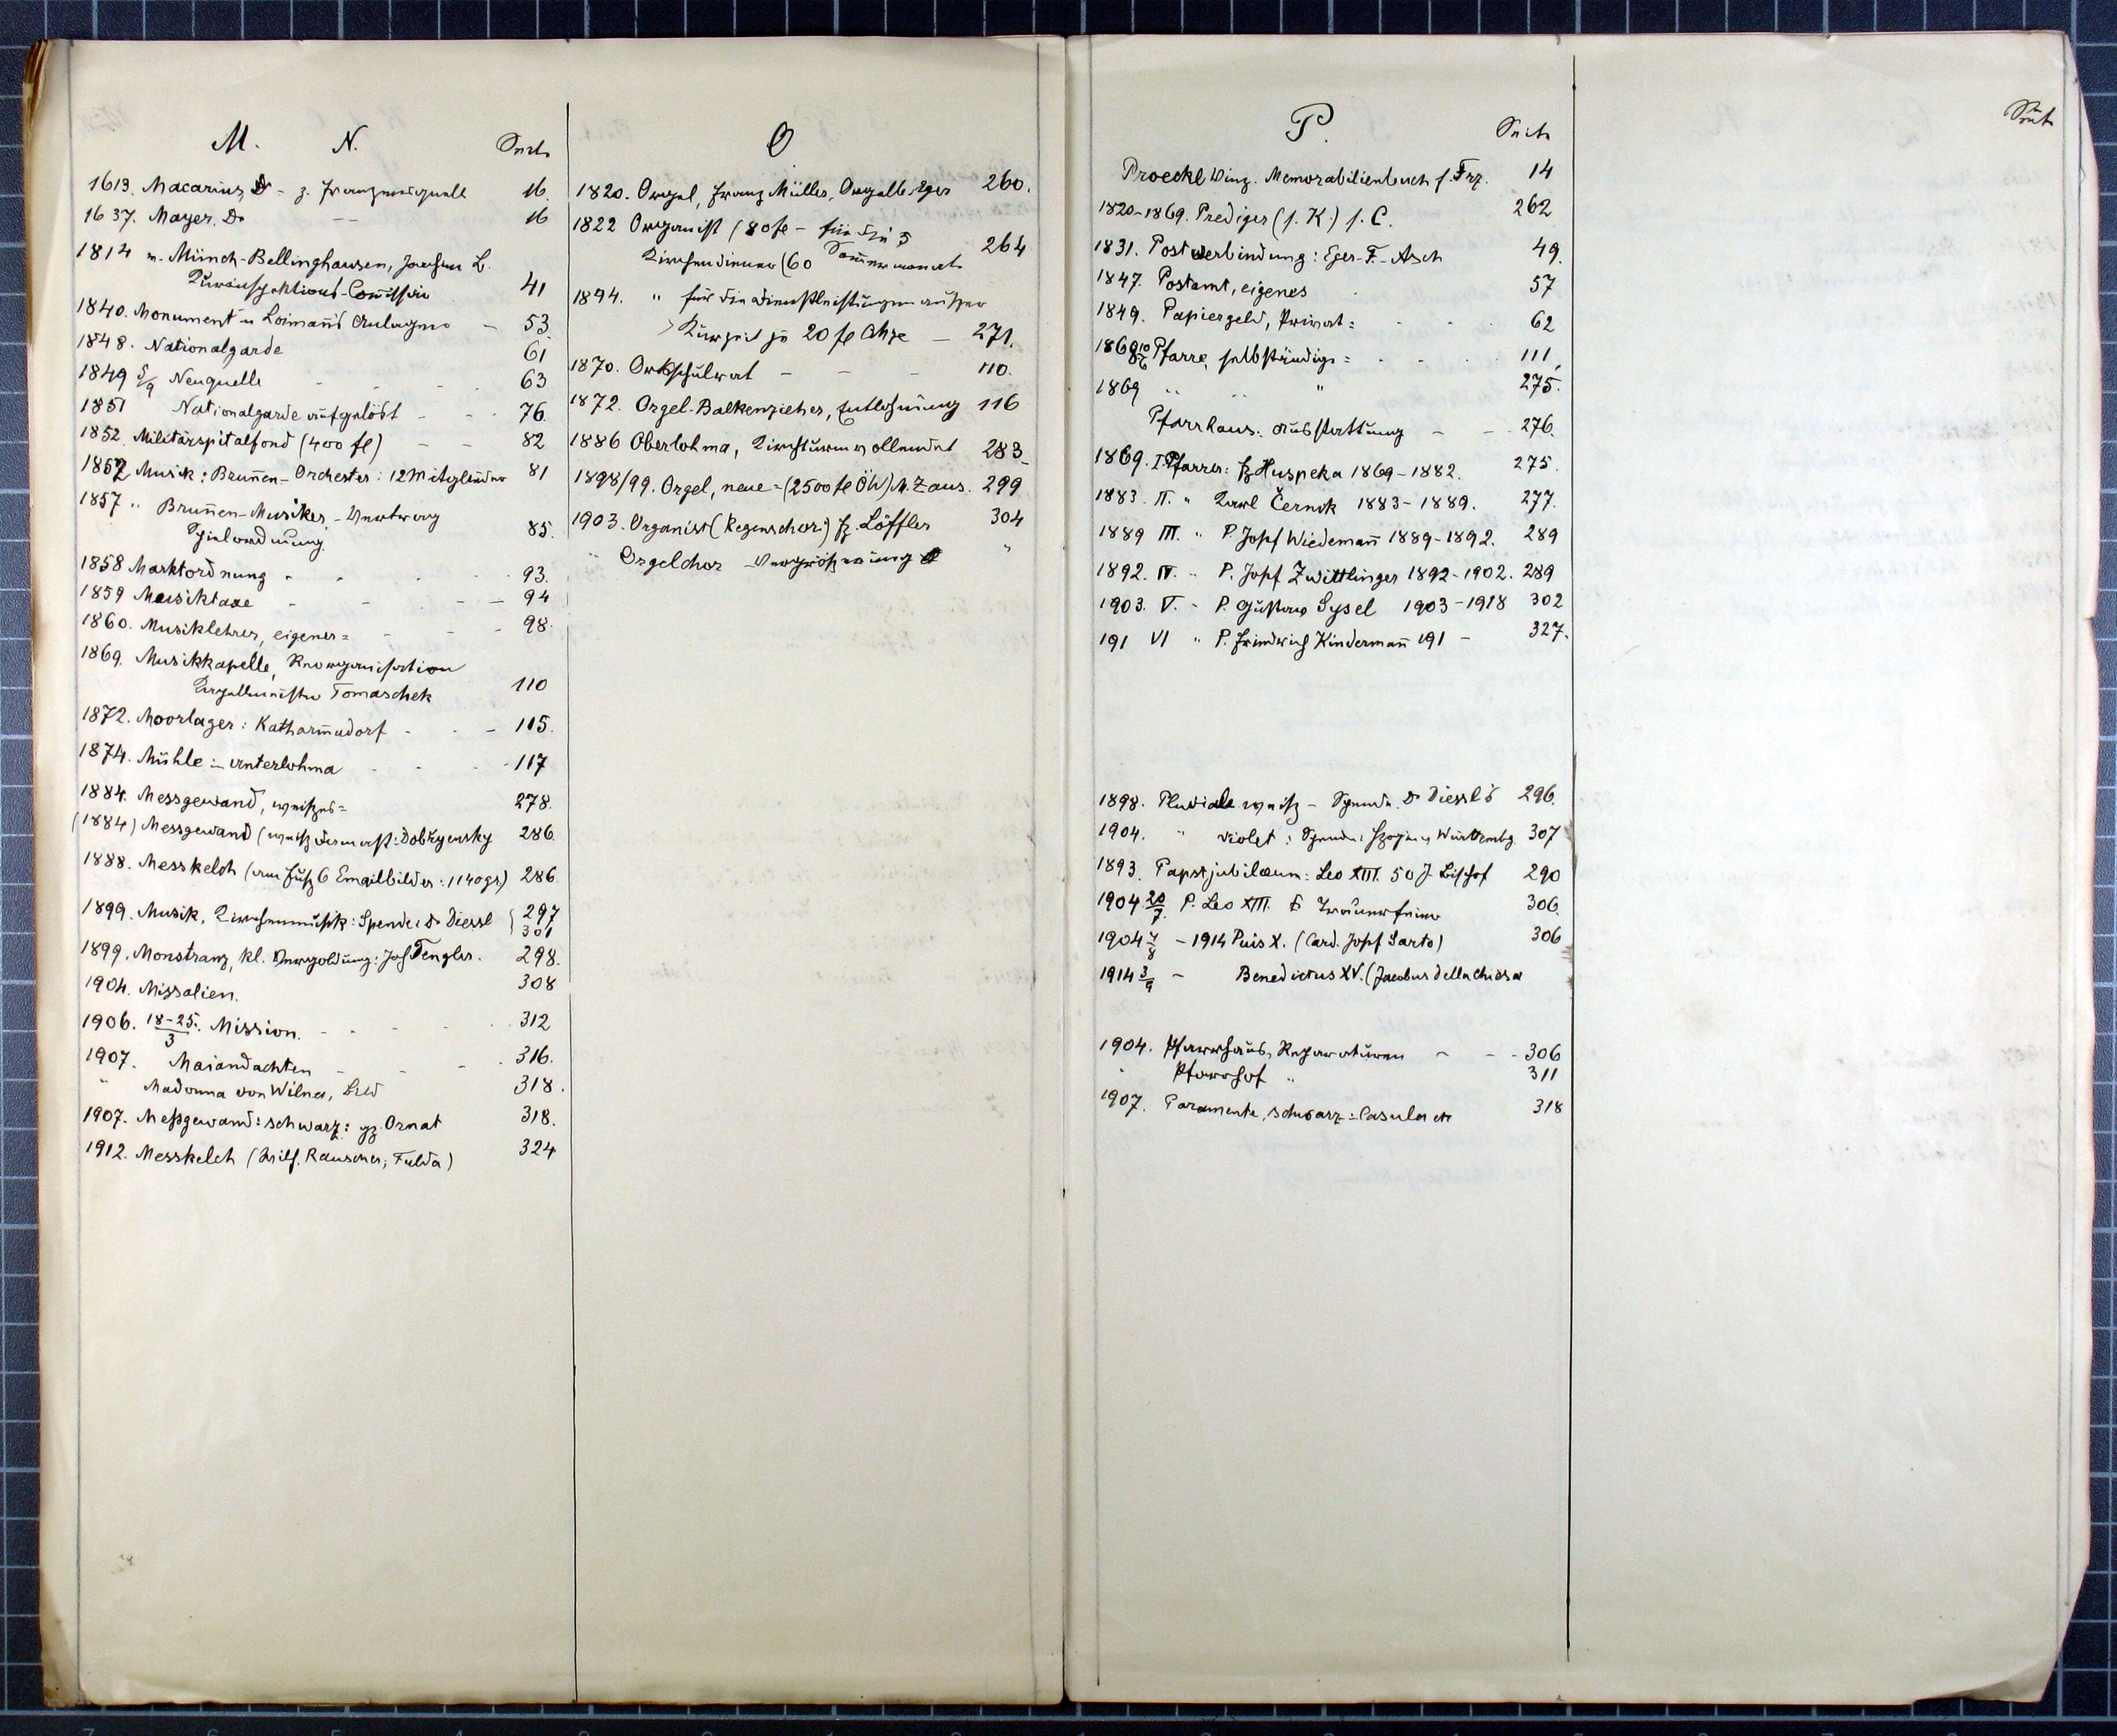 M. N. Seite
1613. Macarius, Dr - z. Franzensquelle 16.
1637. Mayer. Dr - - 16
1814 v. Münch-Bellinghausen, Joachim B.
Kurinspektions-Com̄ission 41
1840. Monument in Loiman̄s Anlagen - 53.
1848. Nationalgarde 61
1849 5/9 Neuquelle - - - 63
1851 Nationalgarde aufgelöst - - 76.
1852. Militärspitalfond (400 fl) - - 82
1852 Musik: Brun̄en-Orchester: 12 Mitglieder 81
1857 " Brun̄en-Musiker, - Vertrag
Spielordnung. 85.
1858 Marktordnung - - - 93.
1859 Musiktaxe - - - 94
1860. Musiklehrer, eigener = - - 98.
1869. Musikkapelle, Reorganisation
Kapellmeister Tomaschek 110
1872. Moorlager: Katharinadorf - - 115.
1874. Mühle in Unterlohma - - 117
1884. Messgewand, weißes= 278.
(1884) Messgewand (weiß Damast: Dobrzensky 286.
1888. Messkelch (am Fuß 6 Emailbilder: 1140 gr.) 286
1899. Musik, Kirchenmusik: Spende: Dr Diessl { 297
301
1899. Monstranz, kl. Vergoldung: Jos Tengler. 298.
1904. Missalien. 308
1906. 18-25./3 Mission. - - - 312
1907. Maiandachten - - - 316.
" Madonna von Wilna, Bild 318.
1907. Meßgewand: schwarz: gz. Ornat 318.
1912. Messkelch (Wilh. Rauscher, Fulda) 324
O
1820. Orgel, Franz Müller, Orgelb. Eger 260.
1822 Organist (80 fl - für die 5
Kirchendiener (60 Som̄ermonate 264
1894. " für die Dienstleistungen außer
Kurzeit je 20 fl - 271.
1870. Ortsschulrat - - - 110.
1872. Orgel-Balkenzieher, Entlohnung 116
1886 Oberlohma, Kirchturm vollendet 283
1898/99. Orgel, neue = (2500 fl ÖW) M. Zaus. 299
1903. Organist (Regenschori) Fz. Löffler 304
" Orgelchor - Vergrößerung "
P. Seite
Proeckl Vinz. Memorabilienbuch f. Frz. 14
1820-1869. Prediger (s. K.) s. C. 262
1831. Postverbindung: Eger-F.-Asch 49.
1847. Postamt, eigenes 57
1849. Papiergeld, Privat= - - - 62
1868 10/6 Pfarre, selbständige= - - - 111,
1869 " " " 275.
Pfarrhaus: Ausstattung - - 276.
1869. I. Pfarrer: Fz Huspeka 1869-1882. 275.
1883. II. " Karl Černik 1883-1889. 277.
1889 III. " P. Josef Wiedeman̄ 1889-1892. 289
1892. IV. " P. Josef Zwittlinger 1892-1902. 289
1903. V. " P. Gustav Sysel 1903-1918 302
191 VI " P. Friedrich Kinderman̄ 191 - 327.
1898. Pluviale weiß - Spende Dr Diessl's 296.
1904. " violet: Spende: Herzogin v Württembg. 307
1893. Papstjubiläum: Leo XIII. 50 J. Bischof 290
1904 20/7. P. Leo XIII. † Trauerfeier 306.
1904 4/8 - 1914 Pius X. (Card. Josef Sarto) 306
1914 3/9 - Benedictus XV. (Jacobus della Chiesa
1904. Pfarrhaus, Reparaturen - - - 306
" Pfarrhof " 311
1907. Paramente, schwarz: Casula etc 318
Seite